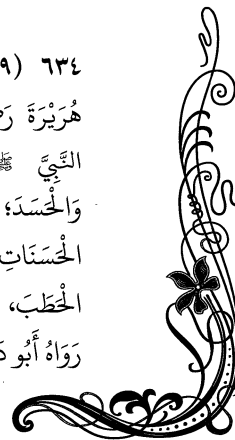 ٦٣٤ (٩
هُرَيْرَةَ رَضِ
النَّبِيَّ ﷺ
وَالْحَسَدَ؛
الْحَسَنَاتِ
الْحَطَبَ،
رَوَاهُ أَبُو دَ